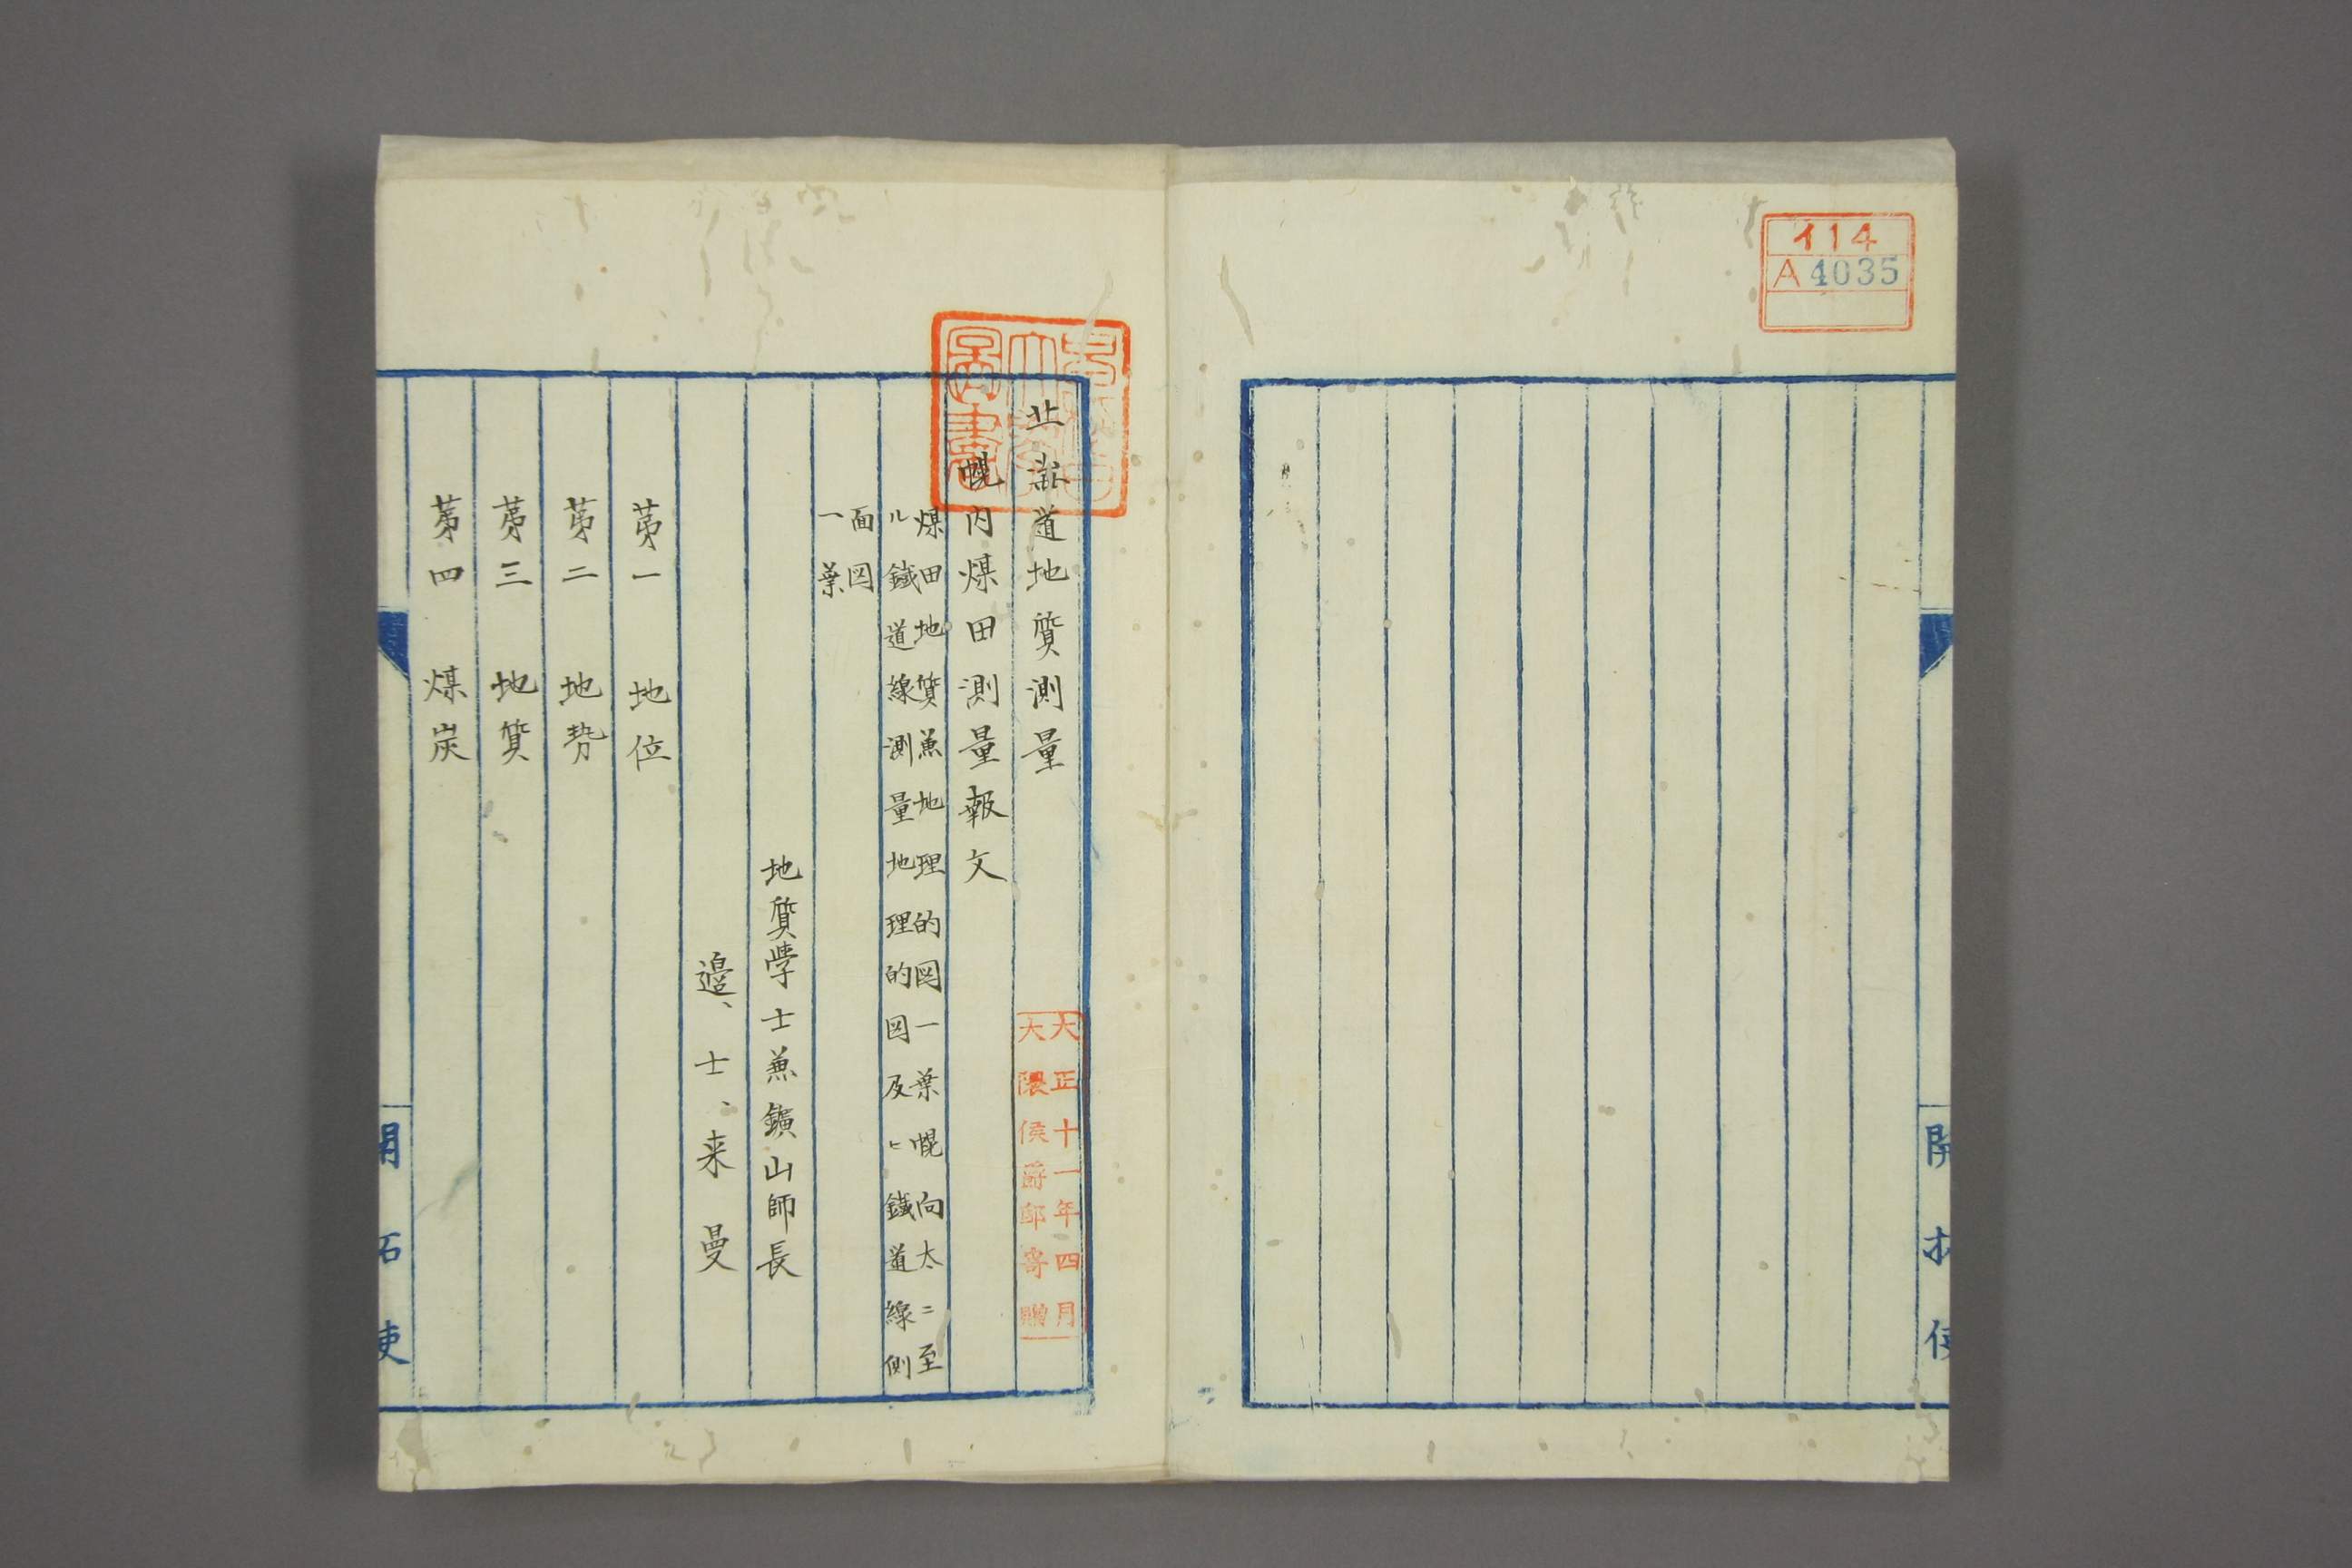 イ14
A4035
開拓使
北海道地質測量
幌内煤田測量報文
煤田地質兼地理的図一葉幌向太ニ至
ル鐵道線測量地理的図及ヒ鐵道線側
面図
一葉
地質学士兼鑛山師長
邉、士、来曼
苐一 地位
苐二 地勢
苐三 地質
苐四 煤炭
大正十一年四月
大隈侯爵邸寄贈
開拓使